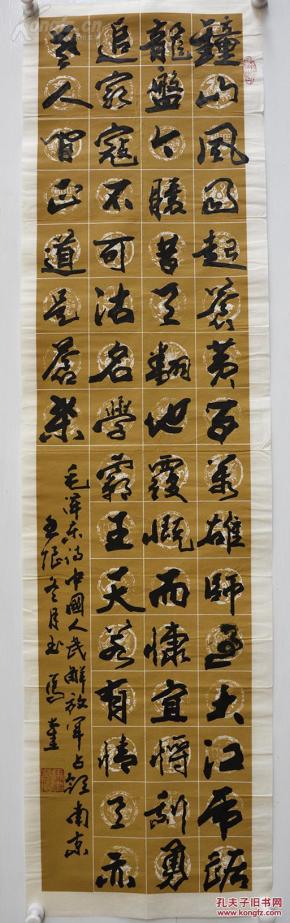 鐘山風雨起蒼黃百萬雄師過大江虎踞
龍盤今勝昔天翻地覆慨而慷宜將剩勇
追窮寇不可沽名學霸王天若有情天亦
老人間正道是滄桑
毛澤東詩中國人民解放軍占領南京
冬月书
孔夫子旧书网